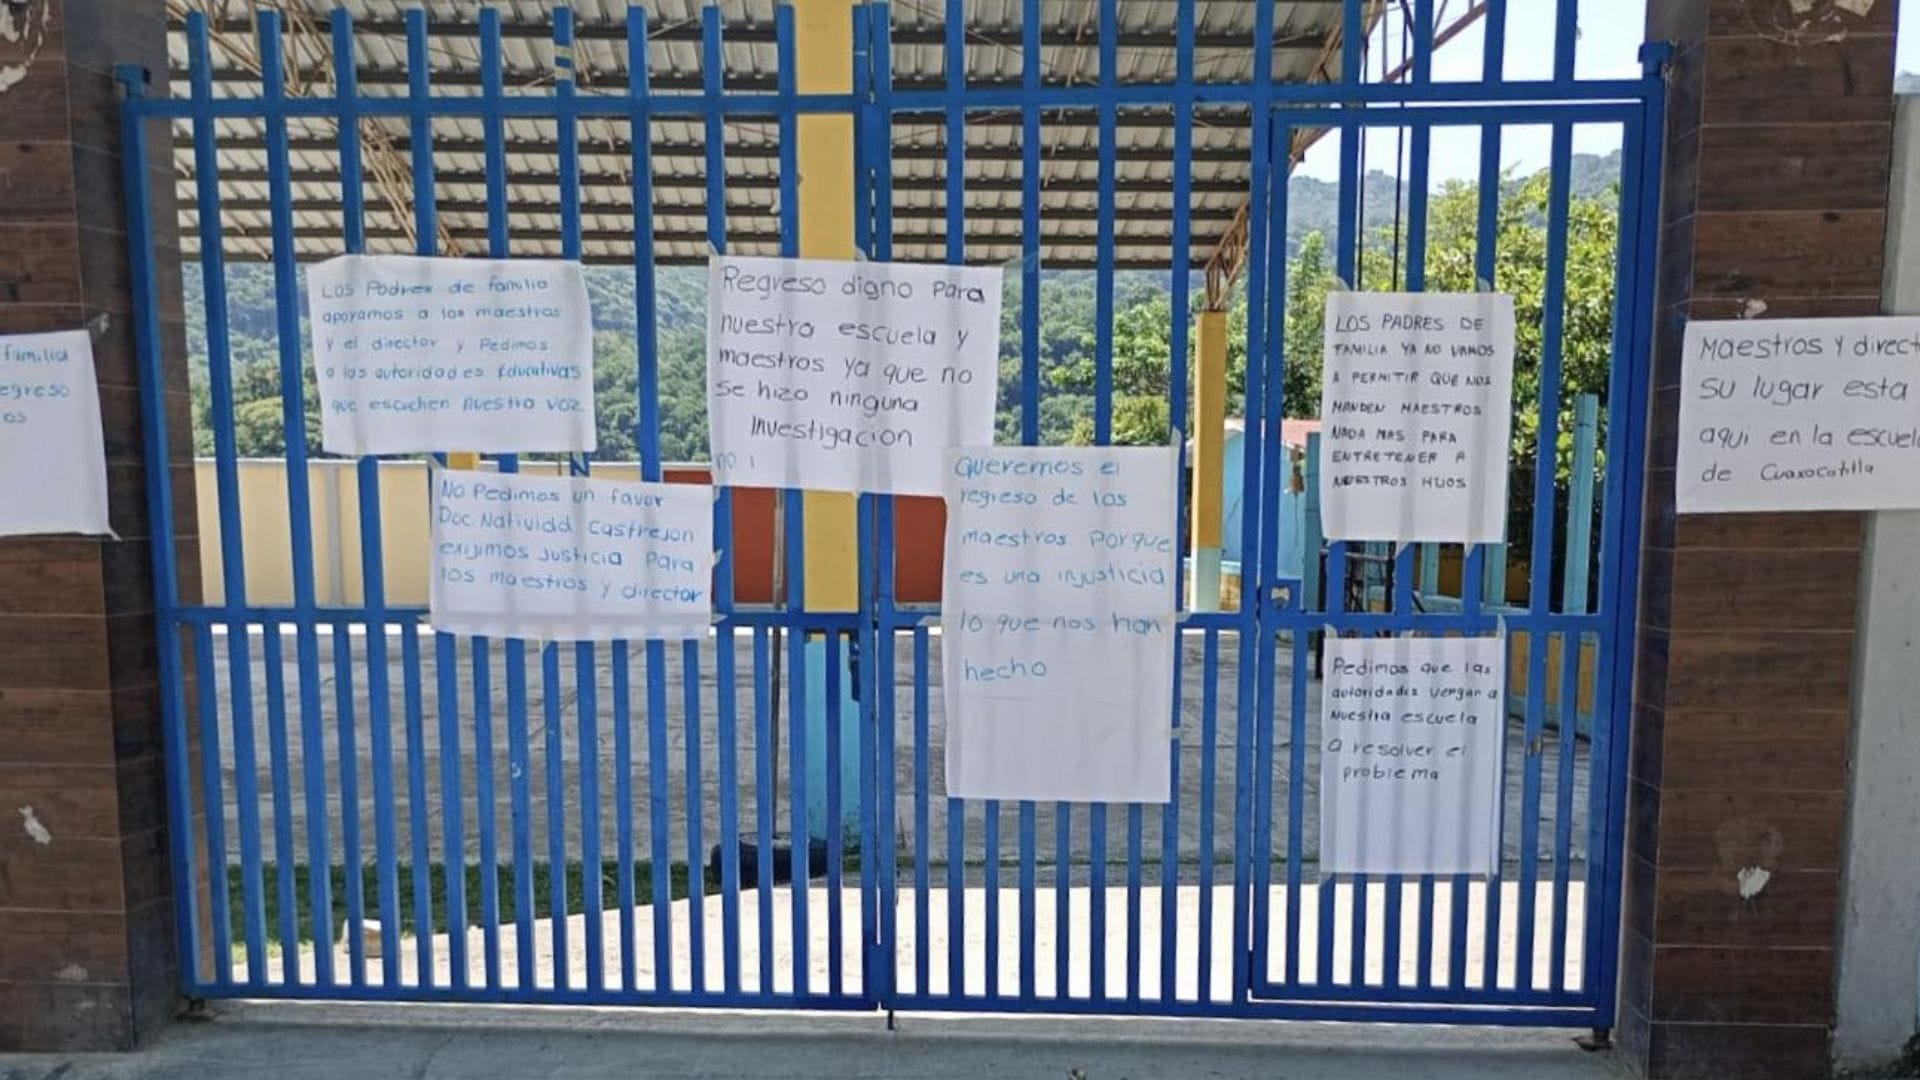 familia
egreso
os
Los Padres de familia
apoyamos a los maestros
y el director y Pedimos
a las autoridades Educativas
que escuchen nuestra voz
No Pedimos un favor
Doc. Natividd Castrejon
exijimos Justicia Para
los maestros y director
Regreso digno Para
nuestra escuela y
maestros ya que no
se hizo ninguna
Investigacion
no
Queremos el
regreso de los
maestros Porque
es una injusticia
lo que nos han
hecho
LOS PADRES DE
FAMILIA YA NO VAMOS
A PERMITIR QUE NOS
MANDEN MAESTROS
NADA MAS PARA
ENTRETENER A
NUESTROS HIJOS
Pedimos que las
autoridades vengan a
Nuestra escuela
a resolver el
problema
Maestros y direct
su lugar esta
aqui en la escuel
de Cuaxocotitla